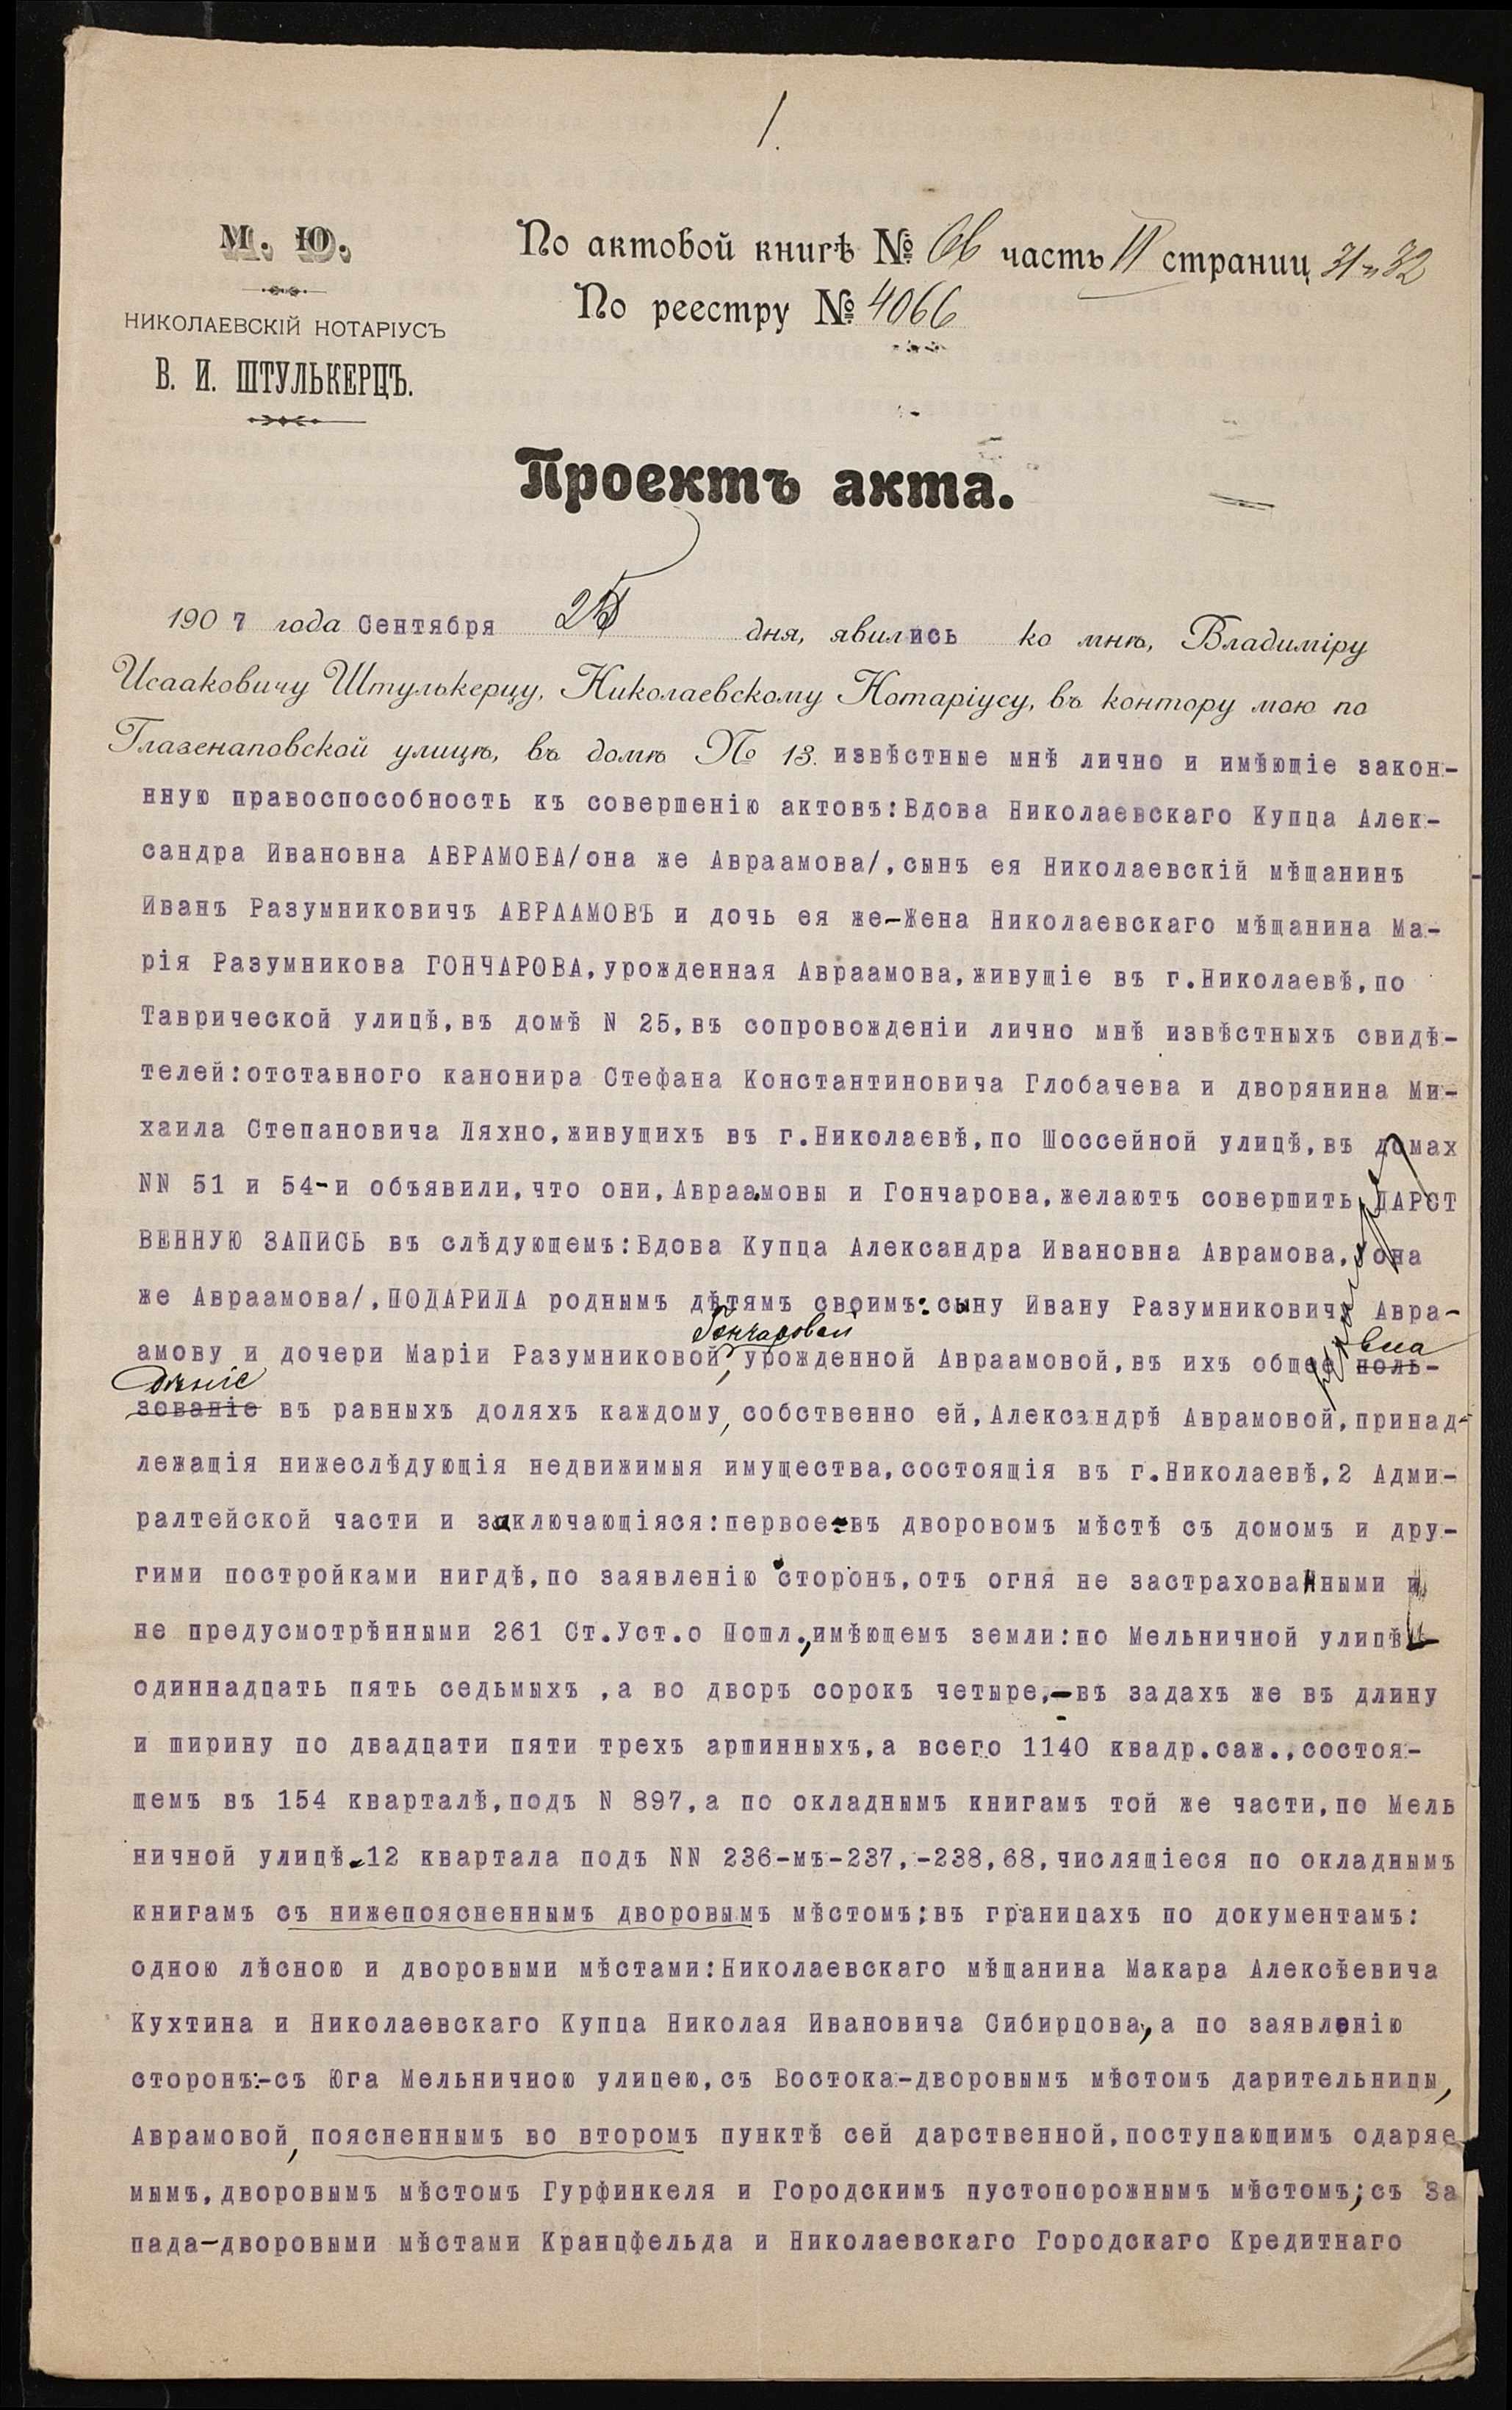 1.
М. Ю.
НИКОЛАЕВСКІЙ НОТАРІУСЪ
В. И. ШТУЛЬКЕРЦЪ.
По актовой книгѣ № часть II страниц 31 и 32
По реестру № 4066
Проектъ акта.
1907 года Сентября дня, явились ко мнѣ, Владиміру
Исааковичу Штулькерцу, Николаевскому Нотаріусу, въ контору мою по
Глазенаповской улицѣ, въ домѣ № 13. извѣстные мнѣ лично и имѣющіе закон-
нную правоспособность къ совершенію актовъ:Вдова Николаевскаго Купца Алек-
сандра Ивановна АВРАМОВА/она же Авраамова/,сынъ ея Николаевскій мѣщанинъ
Иванъ Разумниковичъ АВРААМОВЪ и дочь ея же-Жена Николаевскаго мѣщанина Ма-
рія Разумникова ГОНЧАРОВА,урожденная Авраамова,живущіе въ г.Николаевѣ,по
Таврической улицѣ,въ домѣ N 25,въ сопровожденіи лично мнѣ извѣстныхъ свидѣ-
телей:отставного канонира Стефана Константиновича Глобачева и дворянина Ми-
хаила Степановича Ляхно,живущихъ въ г.Николаевѣ,по Шоссейной улицѣ,въ домах
NN 51 и 54-и объявили,что они,Авраамовы и Гончарова,желаютъ совершить ДАРСТ
ВЕННУЮ ЗАПИСЬ въ слѣдующемъ:Вдова Купца Александра Ивановна Аврамова,/она
же Авраамова/,ПОДАРИЛА роднымъ дѣтямъ своимъ:сыну Ивану Разумниковичу Авра-
Гончаровой
амову и дочери Маріи Разумниковой,урожденной Авраамовой,въ ихъ общее поль-
вла
дѣніе
зованіе въ равныхъ доляхъ каждому,собственно ей,Александрѣ Аврамовой,принад-
лежащія нижеслѣдующія недвижимыя имущества,состоящія въ г.Николаевѣ,2 Адми-
ралтейской части и заключающіяся:первое-въ дворовомъ мѣстѣ съ домомъ и дру-
гими постройками нигдѣ,по заявленію сторонъ,отъ огня не застрахованными и
не предусмотрѣнными 261 Ст.Уст.о Пошл.,имѣющемъ земли:по Мельничной улицѣ
одиннадцать пять седьмыхъ ,а во дворъ сорокъ четыре,-въ задахъ же въ длину
и ширину по двадцати пяти трехъ аршинныхъ,а всего 1140 квадр.саж.,состоя-
щемъ въ 154 кварталѣ,подъ N 897,а по окладнымъ книгамъ той же части,по Мель
ничной улицѣ-12 квартала подъ NN 236-мъ-237,-238,68,числящіеся по окладнымъ
книгамъ съ нижепоясненнымъ дворовымъ мѣстомъ;въ границахъ по документамъ:
одною лѣсною и дворовыми мѣстами:Николаевскаго мѣщанина Макара Алексѣевича
Кухтина и Николаевскаго Купца Николая Ивановича Сибирцова,а по заявленію
сторонъ:-съ Юга Мельничною улицею,съ Востока-дворовымъ мѣстомъ дарительницы,
Аврамовой,поясненнымъ во второмъ пунктѣ сей дарственной,поступающимъ одаряе
мымъ,дворовымъ мѣстомъ Гурфинкеля и Городскимъ пустопорожнымъ мѣстомъ;съ За
пада-дворовыми мѣстами Кранцфельда и Николаевскаго Городскаго Кредитнаго